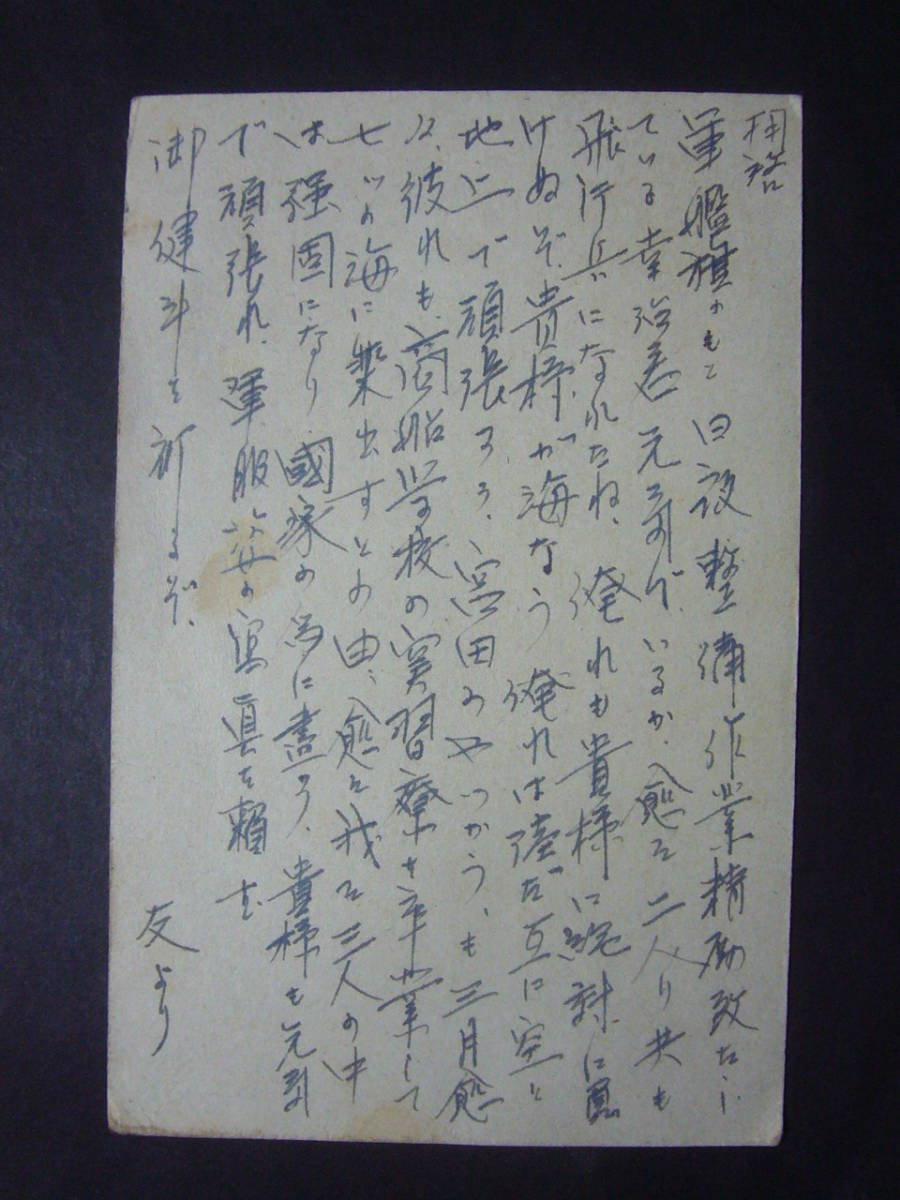 拝啓
軍艦旗のもと日夜整備作業精励致し
ている幸治君元気でいるか、愈々二人り共も
飛行兵になれたね、俺れも貴様に絶対に負
けぬぞ、貴様が海なら俺れは陸だ互に空と
地上で頑張ろう、宮田のやつかうも三月愈
々、彼れも商船学校の実習寮を卒業して
七つの海に乗出すとの由、愈々我々三人の中
は強固になり國家の為に盡そう、貴様も元気
で頑張れ、軍服姿の寫真を頼む
御健斗を祈るぞ、
友より